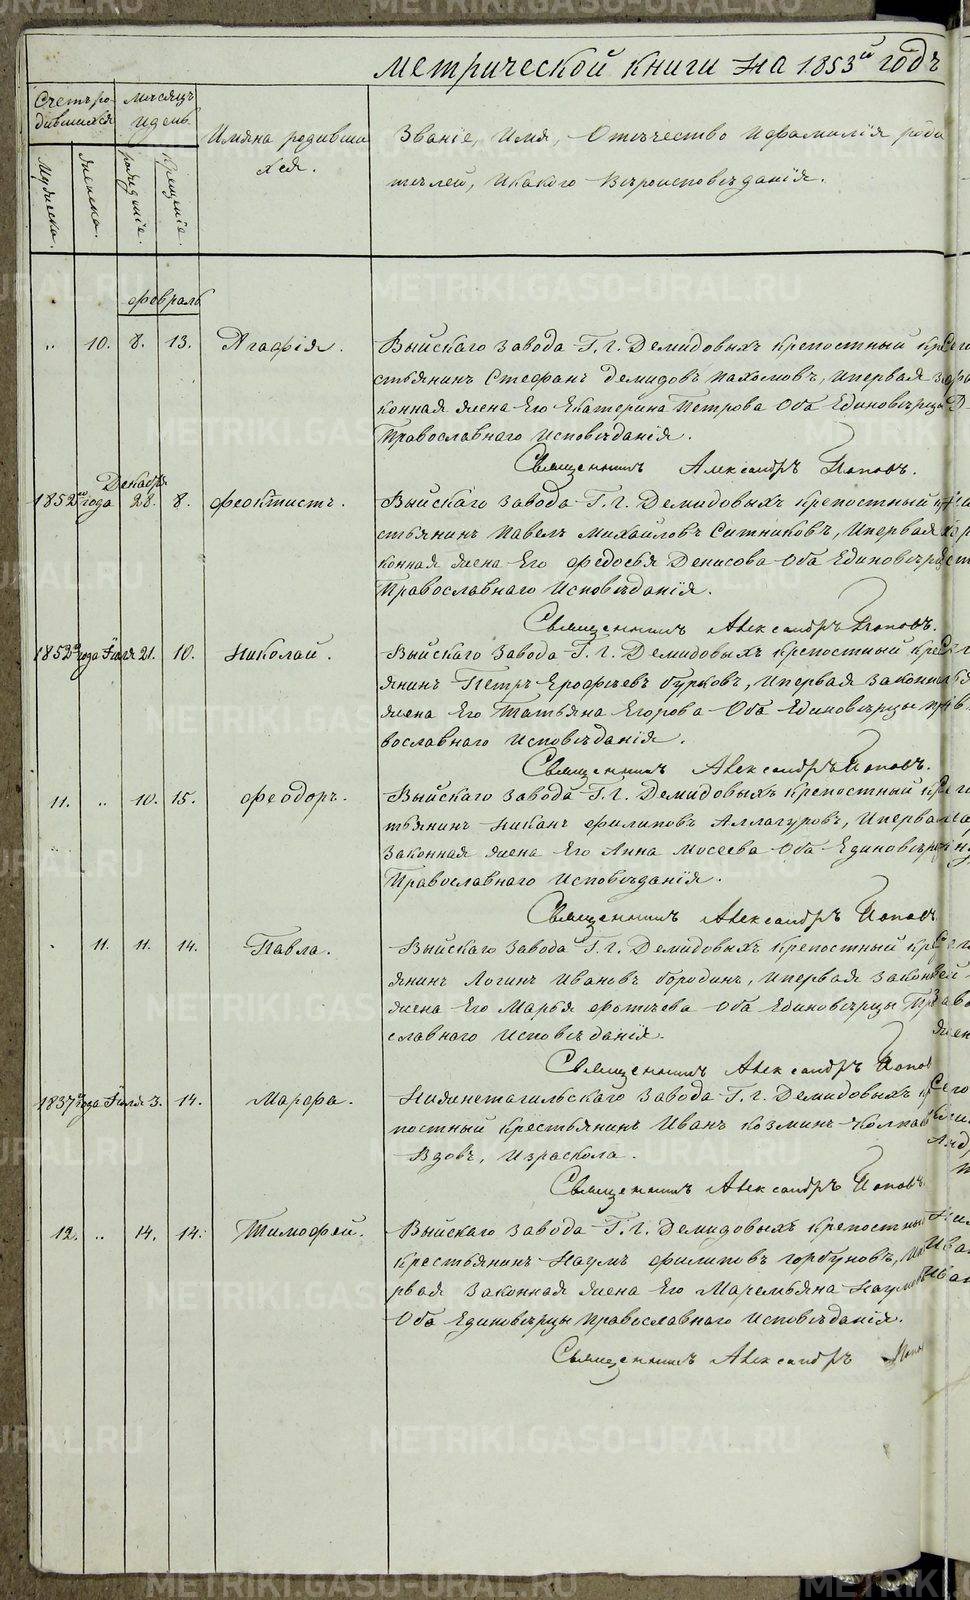 метрической книги на 1853й годъ
Счетъ ро-
дившихся
мѣсяцъ
и день.
Мужеска.
женска.
рожденіе.
крещеніе.
Имяна родивши
хся.
Званіе, Имя, Отечество и фамилія роди
телей, и какого вѣроисповѣданія.
февраль
„ 10. 8. 13. Агафія.
Выйскаго завода Г. г. Демидовыхъ крепостный кре
стьянинъ Стефанъ Демидовъ Пахомовъ, и первая за
конная жена Его Екатерина Петрова Оба Единовѣрцы
Православнаго исповѣданія.
Священникъ Александръ Поповъ.
Декабря
1852го года 28. 8. Феоктистъ.
Выйскаго завода Г. г. Демидовыхъ крепостный кре
стьянинъ Павелъ Михаиловъ Ситниковъ, и первая за
конная жена Его Федосья Денисова Оба Единовѣрцы
Православнаго Исповѣданія.
Священникъ Александръ Поповъ.
1852го года Іюля 21. 10. Николай.
Выйскаго завода Г. г. Демидовыхъ крепостный кресть
янинъ Петръ Ерофѣевъ бурковъ, и первая законная
жена Его Татьяна Егорова Оба Единовѣрцы пра
вославнаго исповѣданія.
Священникъ Александръ Поповъ.
11. „ 10. 15. Феодоръ.
Выйскаго завода Г. г. Демидовыхъ крепостный крес
тьянинъ Никанъ Филиповъ Аллагуровъ, и первая
законная жена Его Анна Мосеева Оба Единовѣрцы
Православнаго исповѣданія.
Священникъ Александръ Поповъ
„ 11. 11. 14. Павла.
Выйскаго завода Г. г. Демидовыхъ крепостный кресть
янинъ Логинъ Ивановъ бородинъ, и первая законная
жена Его Марья Фотѣева Оба Единовѣрцы Право
славнаго исповѣданія.
Священникъ Александръ Попов
1837го года Іюля 3. 14. Марфа.
Нижнетагильскаго завода Г. г. Демидовыхъ кре
постный крестьянинъ Иванъ Козминъ
Вдовъ, израскола.
Священникъ Александръ Поповъ
12. „ 14. 14. Тимофей.
Выйскаго завода Г. г. Демидовыхъ крепостный
крестьянинъ Наумъ Филиповъ горбуновъ, и пе
рвая законная жена Его Маремьяна Наумова
Оба Единовѣрцы православнаго исповѣданія.
Священникъ Александръ Попов
METRIKI.GASO-URAL.RU